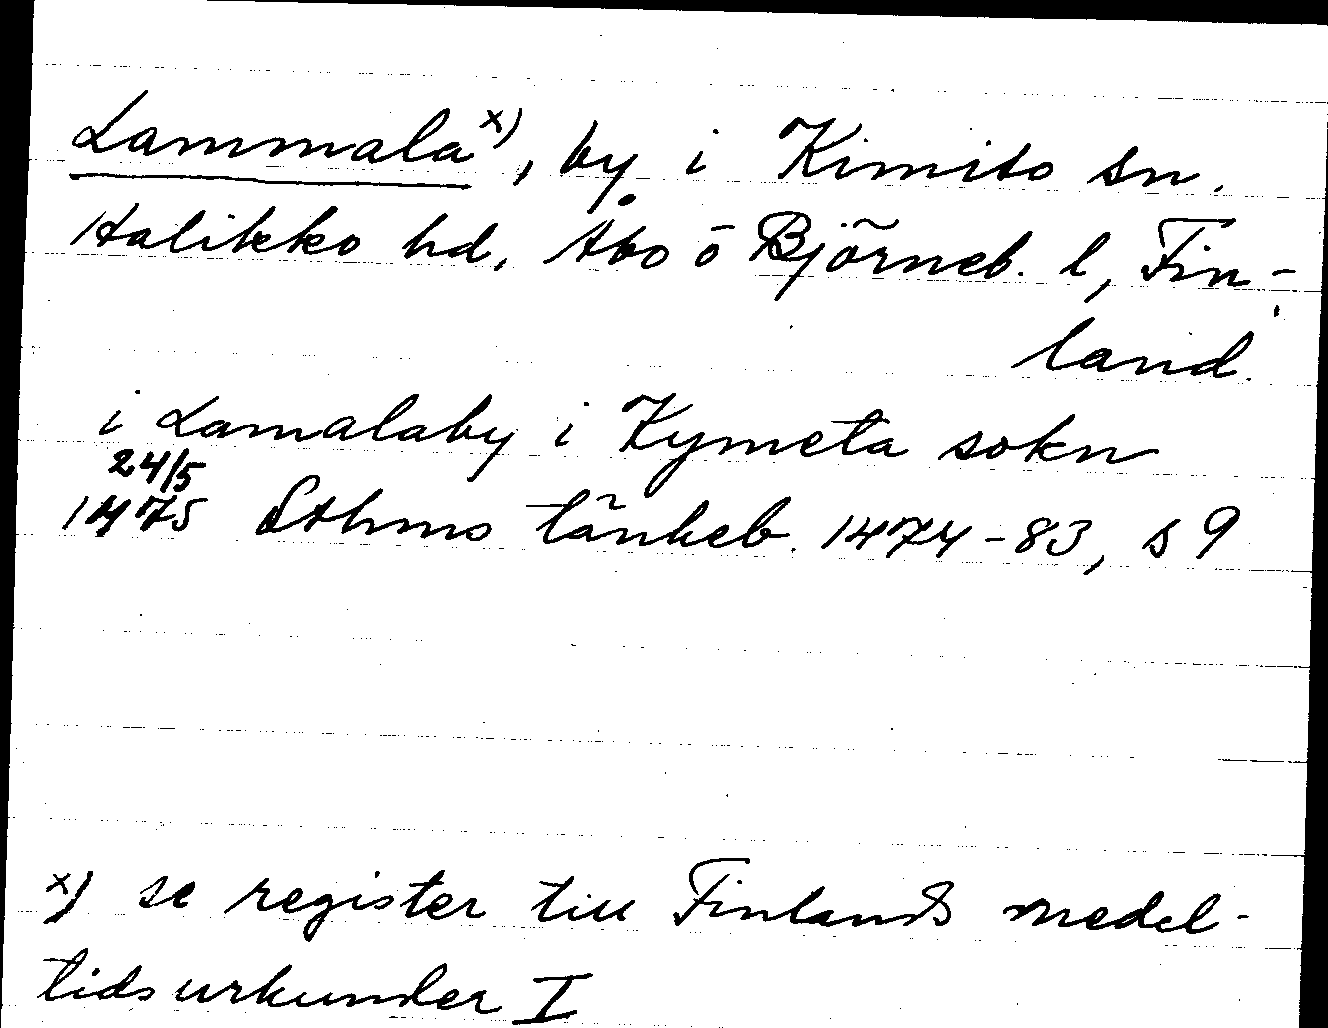 Lammala x), by i Kimito sn.
Halikko hd, Åbo o Björneb. l, Fin-
land.
i Lamalaby i Kymeta sokn
24/5
1475 Sthms tänkeb. 1474-83, s 9
x) se register till Finlands medel-
tidsurkunder I